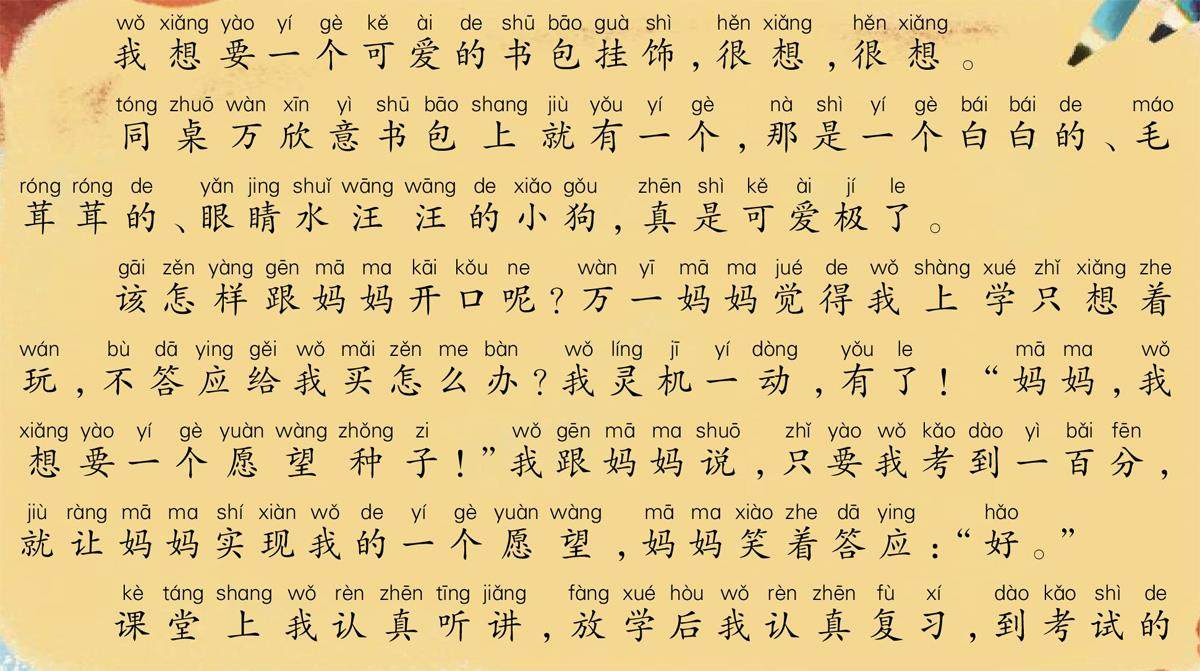 wǒ xiǎng yào yí gè kě ài de shū bāo guà shì hěn xiǎng hěn xiǎng
我想要一个可爱的书包挂饰，很想，很想。
tóng zhuō wàn xīn yì shū bāo shang jiù yǒu yí gè nà shì yí gè bái bái de máo
同桌万欣意书包上就有一个，那是一个白白的、毛
róng róng de yǎn jing shuǐ wāng wāng de xiǎo gǒu zhēn shì kě ài jí le
茸茸的、眼睛水汪汪的小狗，真是可爱极了。
gāi zěn yàng gēn mā ma kāi kǒu ne wàn yī mā ma jué de wǒ shàng xué zhǐ xiǎng zhe
该怎样跟妈妈开口呢？万一妈妈觉得我上学只想着
wán bù dā ying gěi wǒ mǎi zěn me bàn wǒ líng jī yí dòng yǒu le mā ma wǒ
玩，不答应给我买怎么办？我灵机一动，有了！“妈妈，我
xiǎng yào yí gè yuàn wàng zhǒng zi wǒ gēn mā ma shuō zhǐ yào wǒ kǎo dào yì bǎi fēn
想要一个愿望种子！”我跟妈妈说，只要我考到一百分，
jiù ràng mā ma shí xiàn wǒ de yí gè yuàn wàng mā ma xiào zhe dā ying hǎo
就让妈妈实现我的一个愿望，妈妈笑着答应：“好。”
kè táng shang wǒ rèn zhēn tīng jiǎng fàng xué hòu wǒ rèn zhēn fù xí dào kǎo shì de
课堂上我认真听讲，放学后我认真复习，到考试的